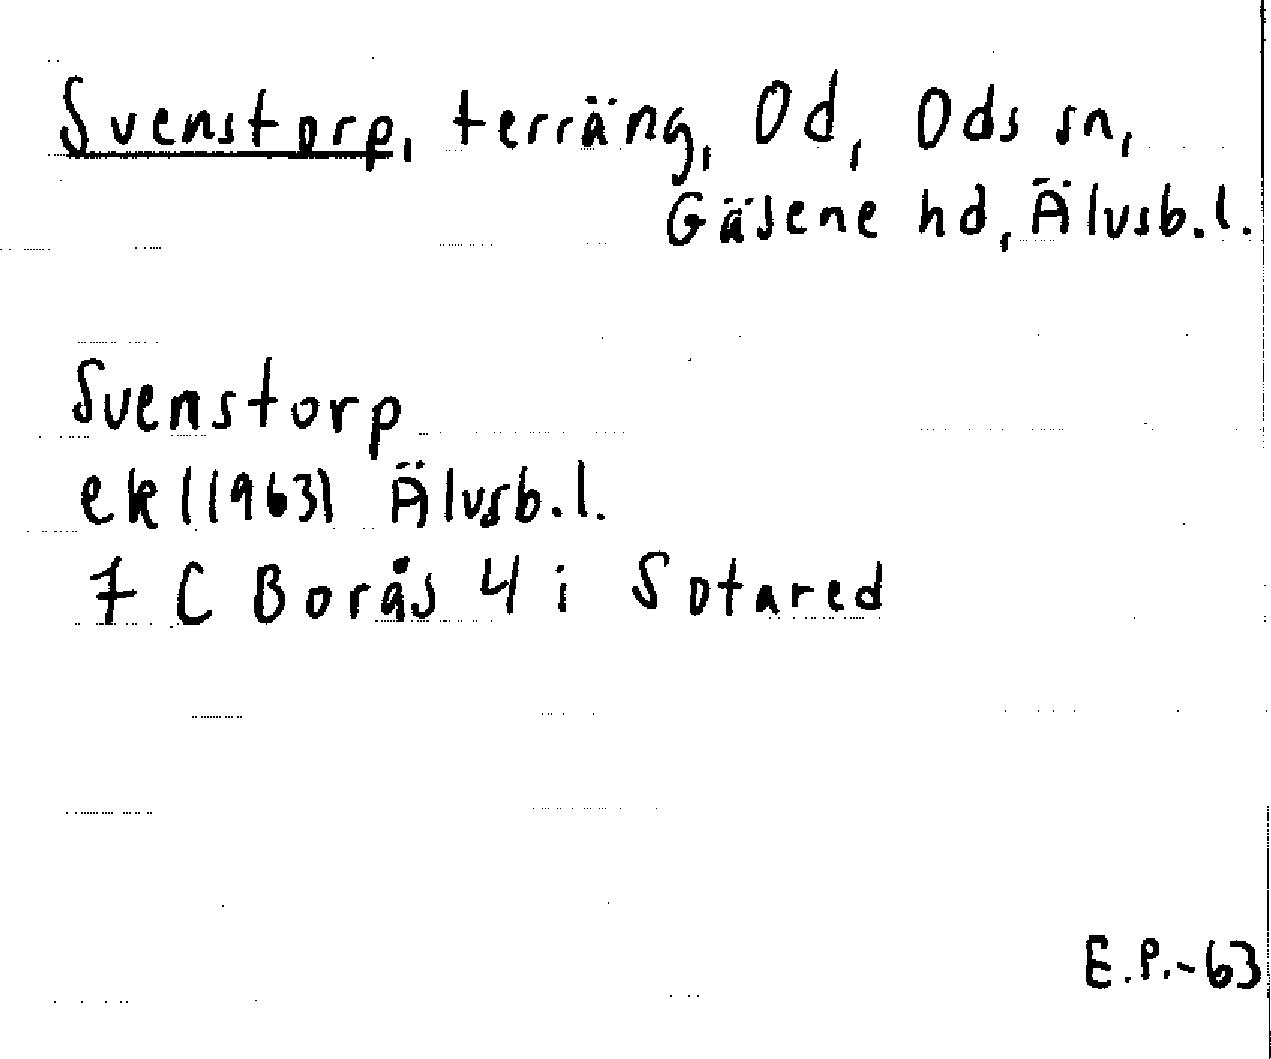 Svenstorp, terräng, Od, Ods sn,
Gäsene hd, Älvsb.l.
Svenstorp
ek (1963) Älvsb.l.
7 C Borås 4 i Sotared
E.P.-63